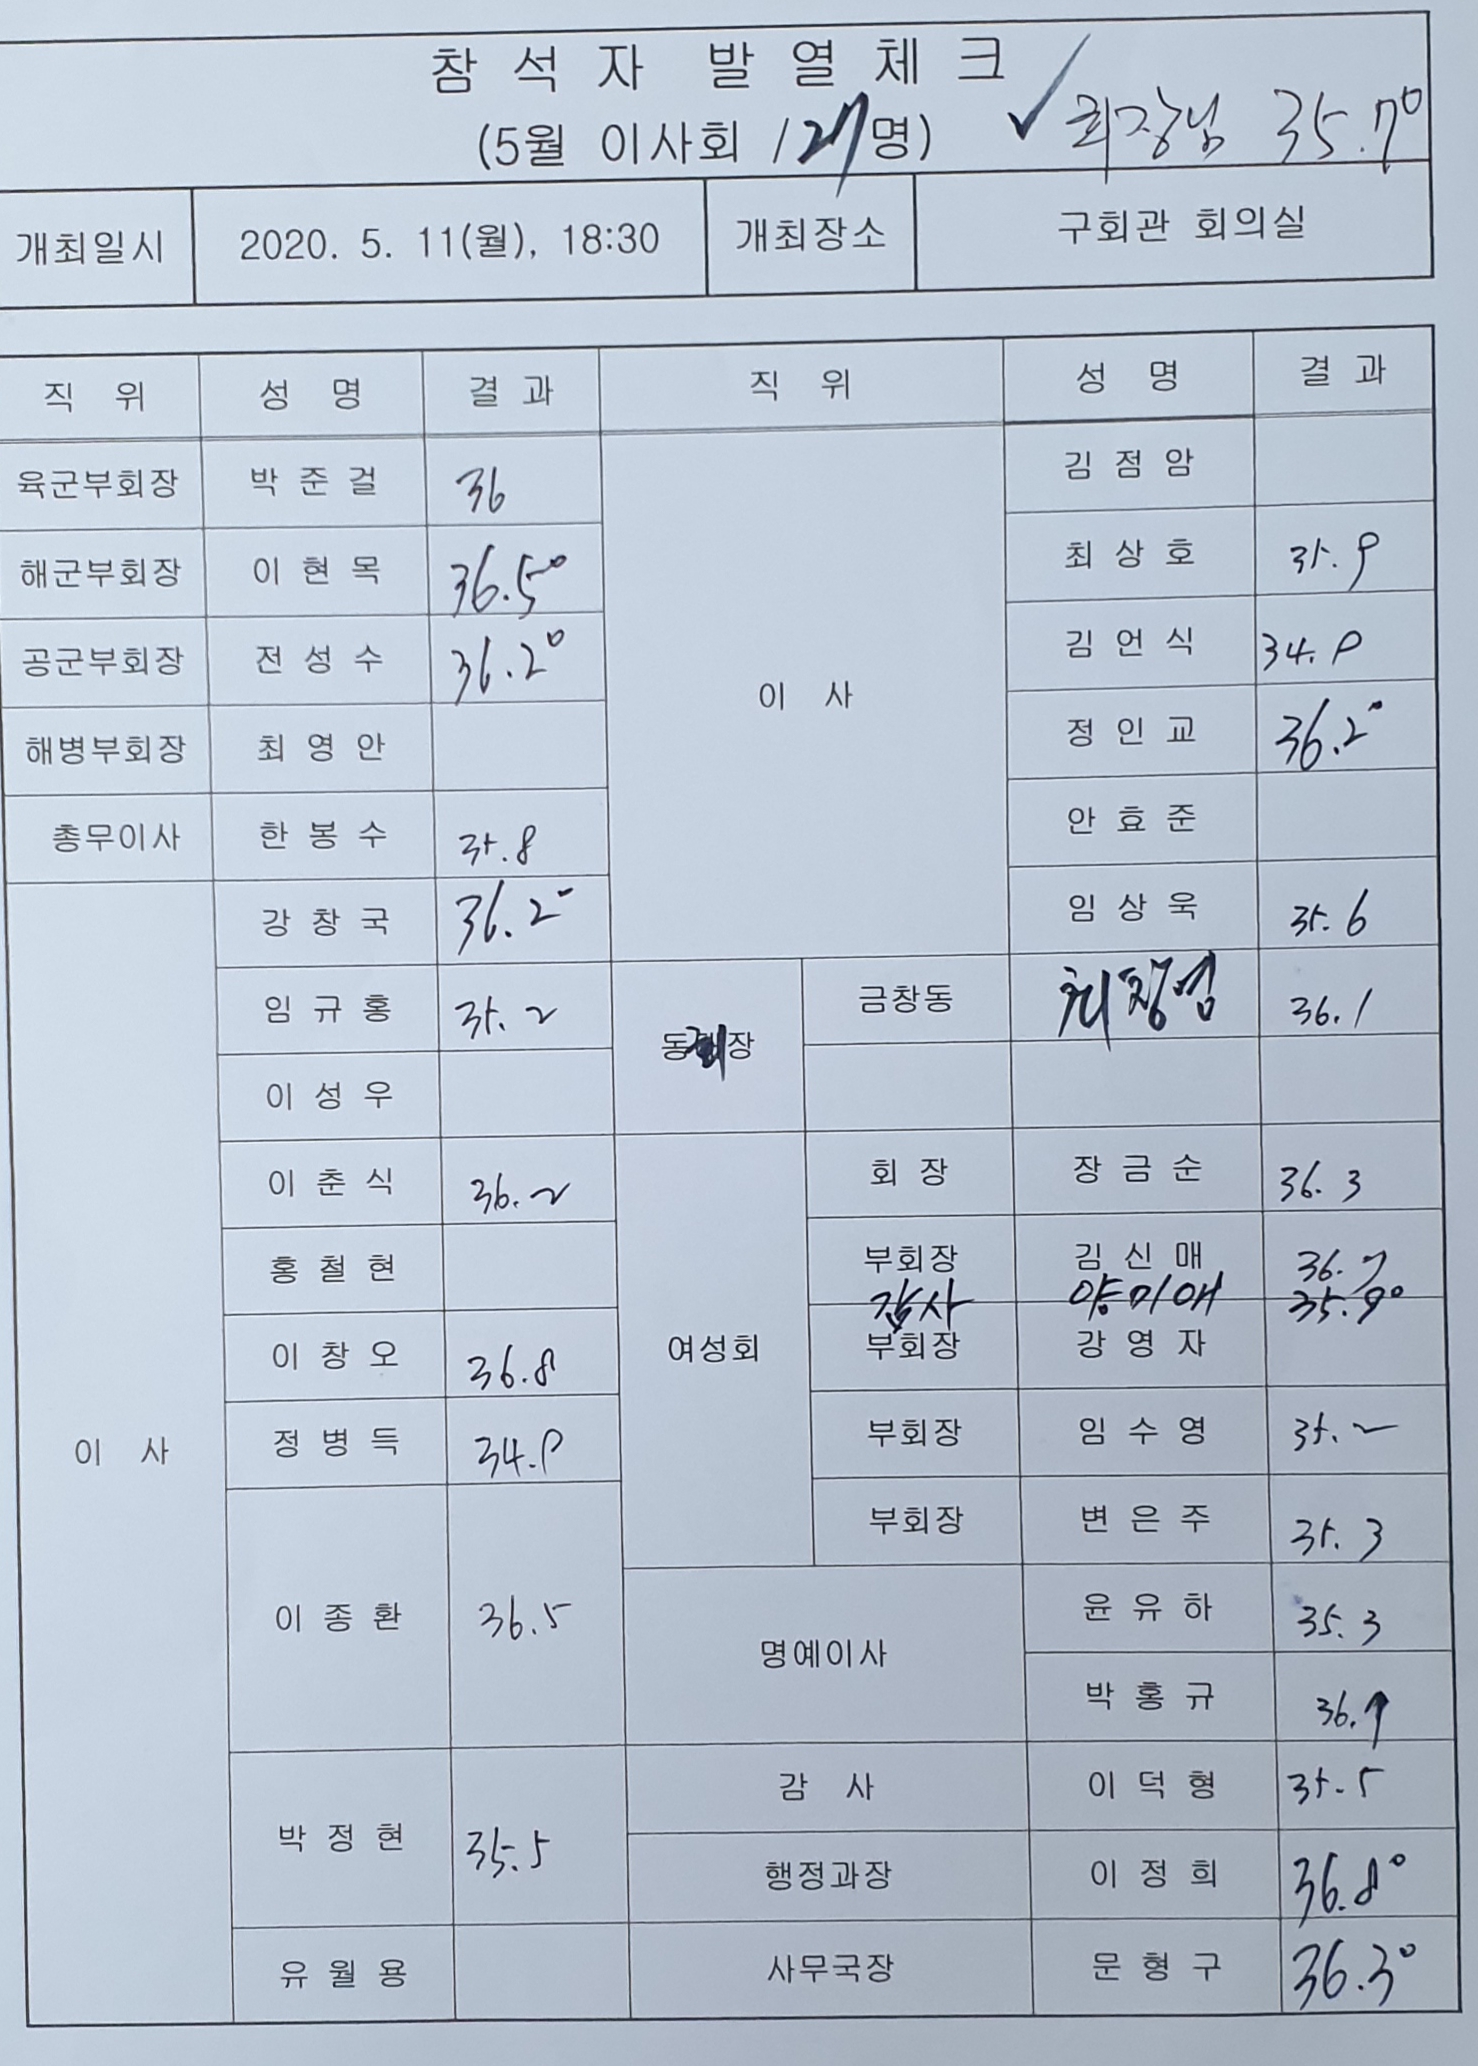 참석자 발열체크
(5월 이사회 /27명) ✓ 회장님 35.7°
개최일시 2020. 5. 11(월), 18:30 개최장소 구회관 회의실
직 위 성 명 결 과 직 위 성 명 결 과
육군부회장 박준걸 36 이 사 김점암
해군부회장 이현목 36.5° 최상호 35.9
공군부회장 전성수 36.2° 김언식 34.9
해병부회장 최영안 정인교 36.2°
총무이사 한봉수 35.8 안효준
이 사 강창국 36.2° 임상욱 35.6
임규홍 35.2 동회장 금창동 36.1
이성우
이춘식 36.2 여성회 회 장 장금순 36.3
홍철현 부회장 김신매 36.7
감사 양미애 35.9°
이창오 36.8 부회장 강영자
정병득 34.9 부회장 임수영 35.2
부회장 변은주 35.3
이종환 36.5 명예이사 윤유하 35.3
박홍규
박정현 35.5 감 사 이덕형 35.5
행정과장 이정희 36.8°
유월용 사무국장 문형구 36.3°